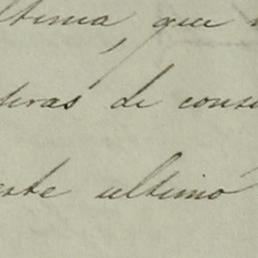 ltima, que
deras de cons
este ultimó